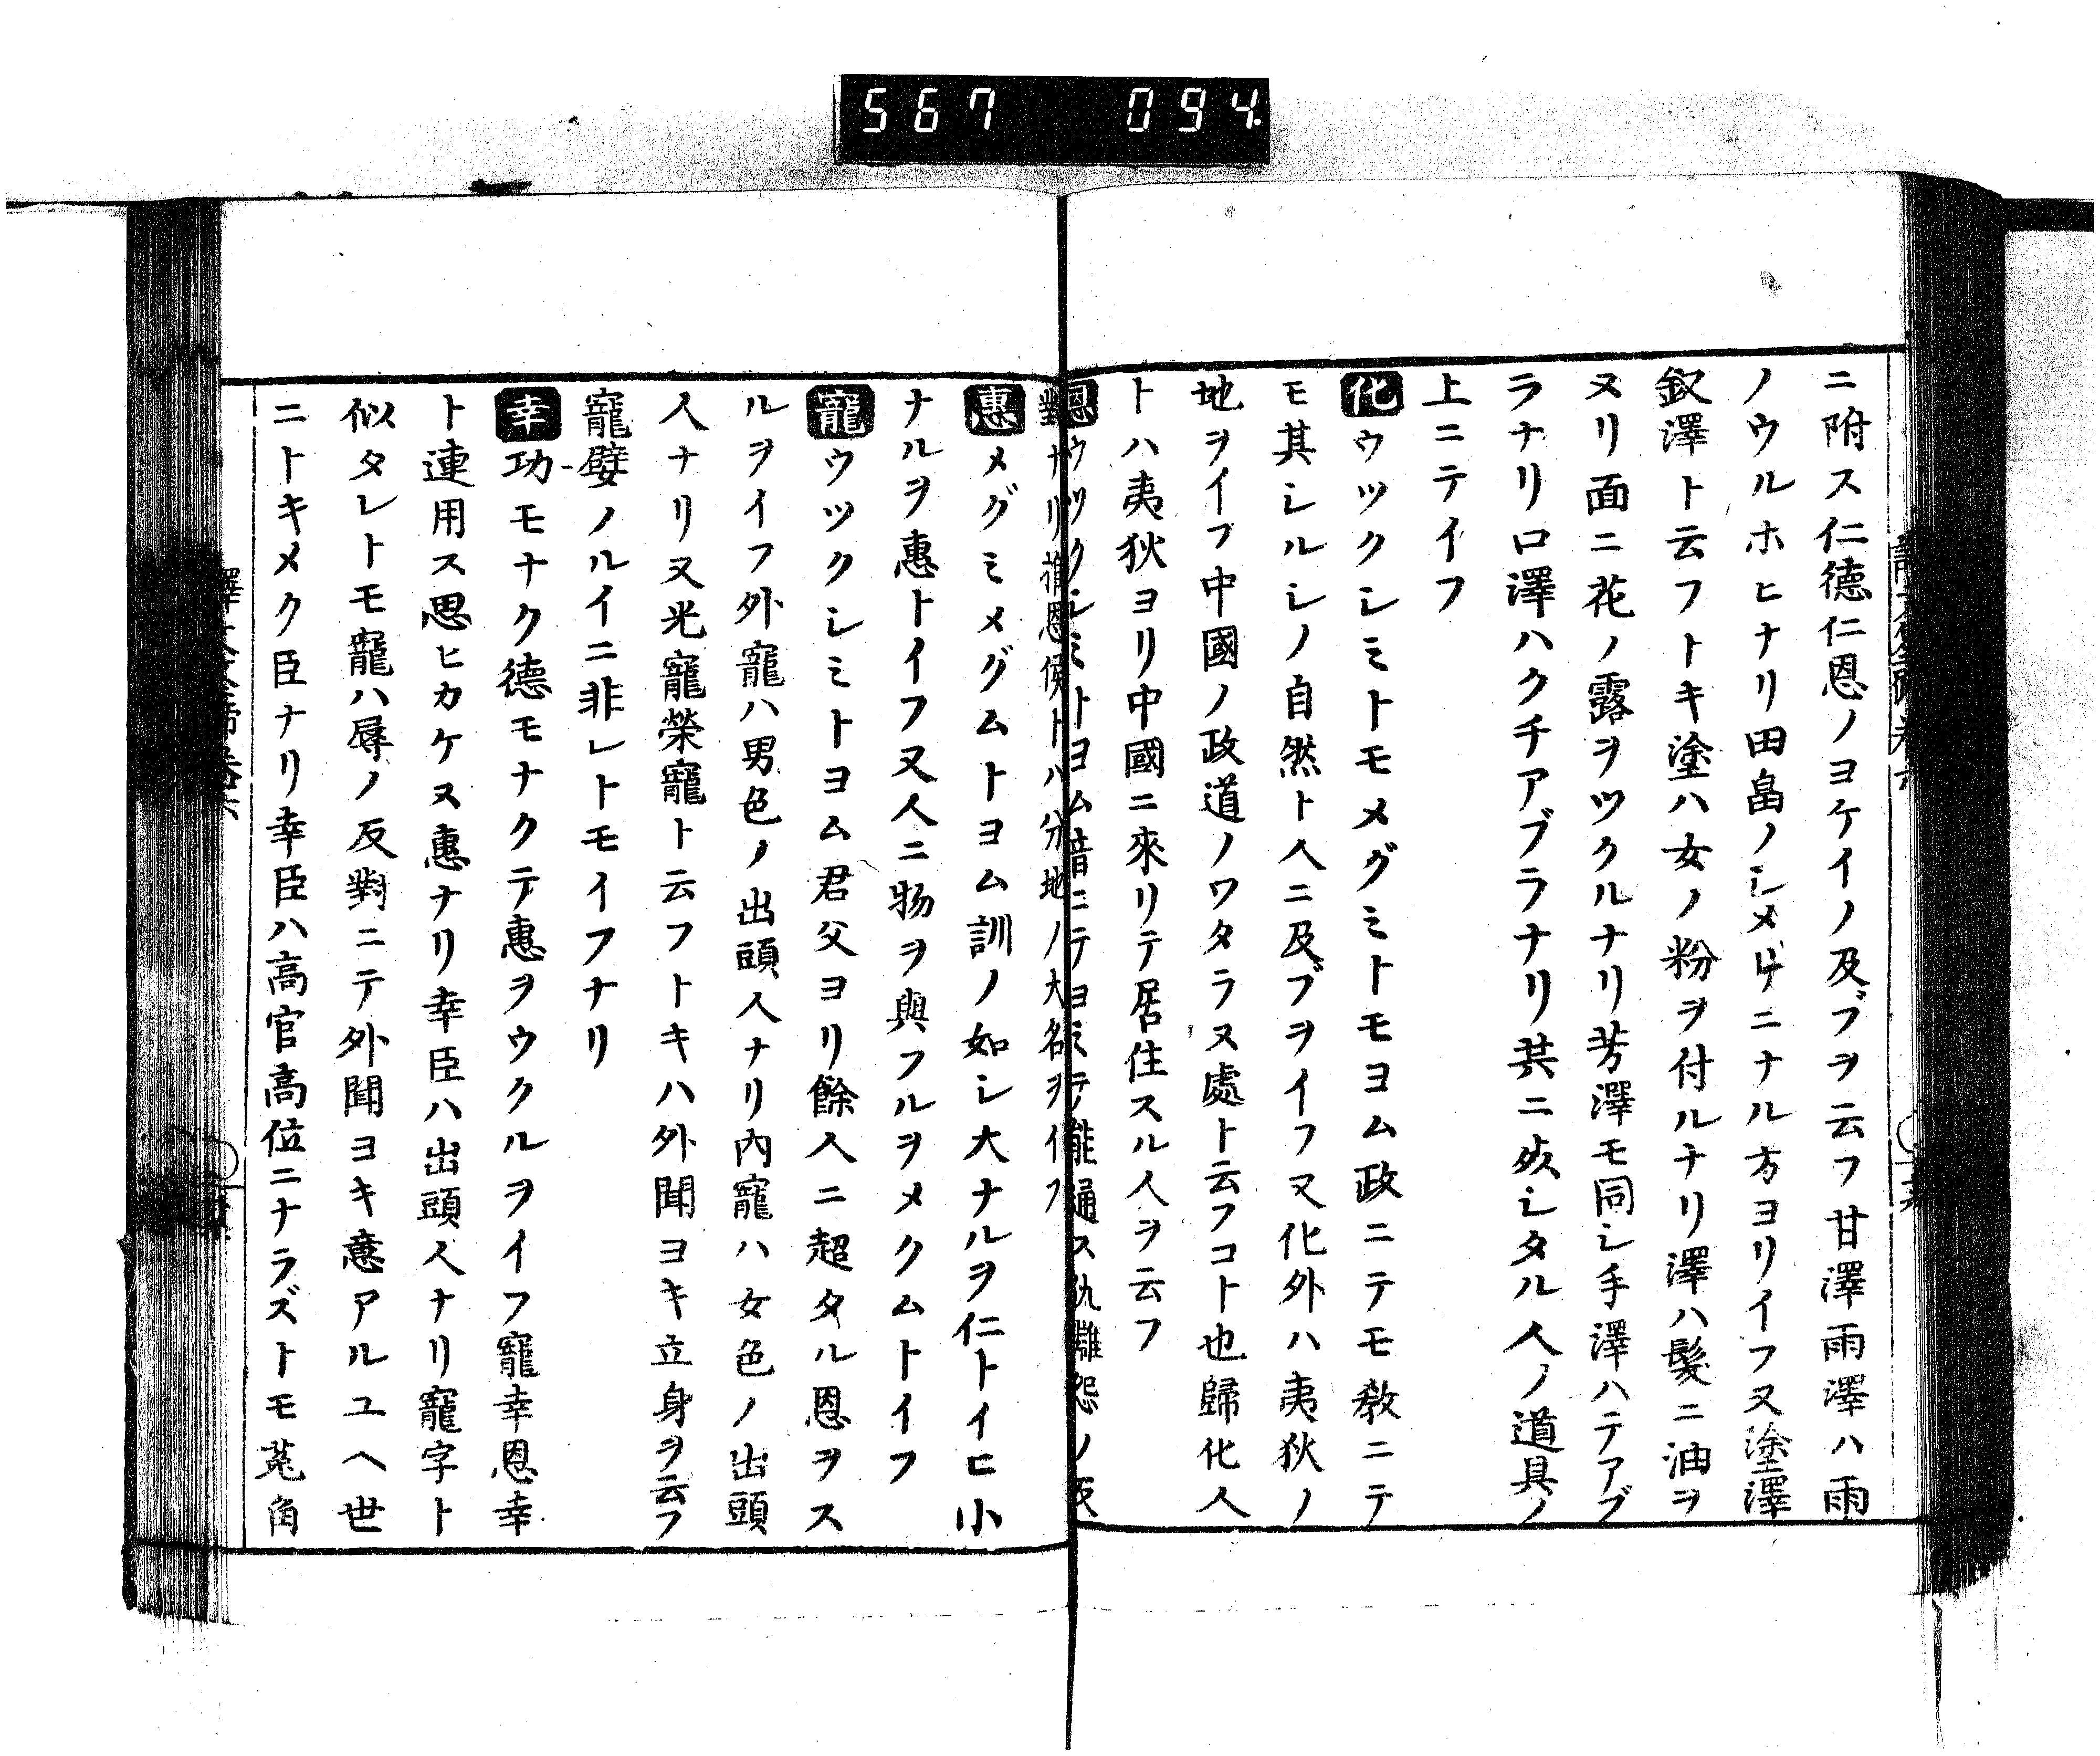 567 094
ニ附ス仁德仁恩ノヨケイノ及ブヲ云フ甘澤雨澤ハ雨
ノウルホヒナリ田畠ノシメゲニナル方ヨリイフ又塗澤
釵澤ト云フトキ塗ハ女ノ粉ヲ付ルナリ澤ハ髮ニ油ヲ
ヌリ面ニ花ノ露ヲツクルナリ芳澤モ同シ手澤ハテアブ
ラナリ口澤ハクチアブラナリ共ニ死シタル人ノ道具ノ
上ニテイフ
化ウツクシミトモメグミトモヨム政ニテモ教ニテ
モ其シルシノ自然ト人ニ及ブヲイフ又化外ハ夷狄ノ
地ヲイフ中國ノ政道ノワタラヌ處ト云フコト也歸化人
トハ夷狄ヨリ中國ニ來リテ居住スル人ヲ云フ
恩ウツクシミトヨム音ニテヨミテ能通ス仇讎怨ノ反
對ナリ推恩侯トハ分地ノ大名ヲイフ
惠メグミメグムトヨム訓ノ如シ大ナルヲ仁トイヒ小
ナルヲ惠トイフ又人ニ物ヲ與フルヲメクムトイフ
寵ウツクシミトヨム君父ヨリ餘人ニ超タル恩ヲス
ルヲイフ外寵ハ男色ノ出頭人ナリ內寵ハ女色ノ出頭
人ナリ又光寵榮寵ト云フトキハ外聞ヨキ立身ヲ云フ
寵嬖ノルイニ非レトモイフナリ
幸功モナク德モナクテ惠ヲウクルヲイフ寵幸恩幸
ト連用ス思ヒカケヌ惠ナリ幸臣ハ出頭人ナリ寵字ト
似タレトモ寵ハ辱ノ反對ニテ外聞ヨキ意アルユヘ世
ニトキメク臣ナリ幸臣ハ高官高位ニナラズトモ菟角